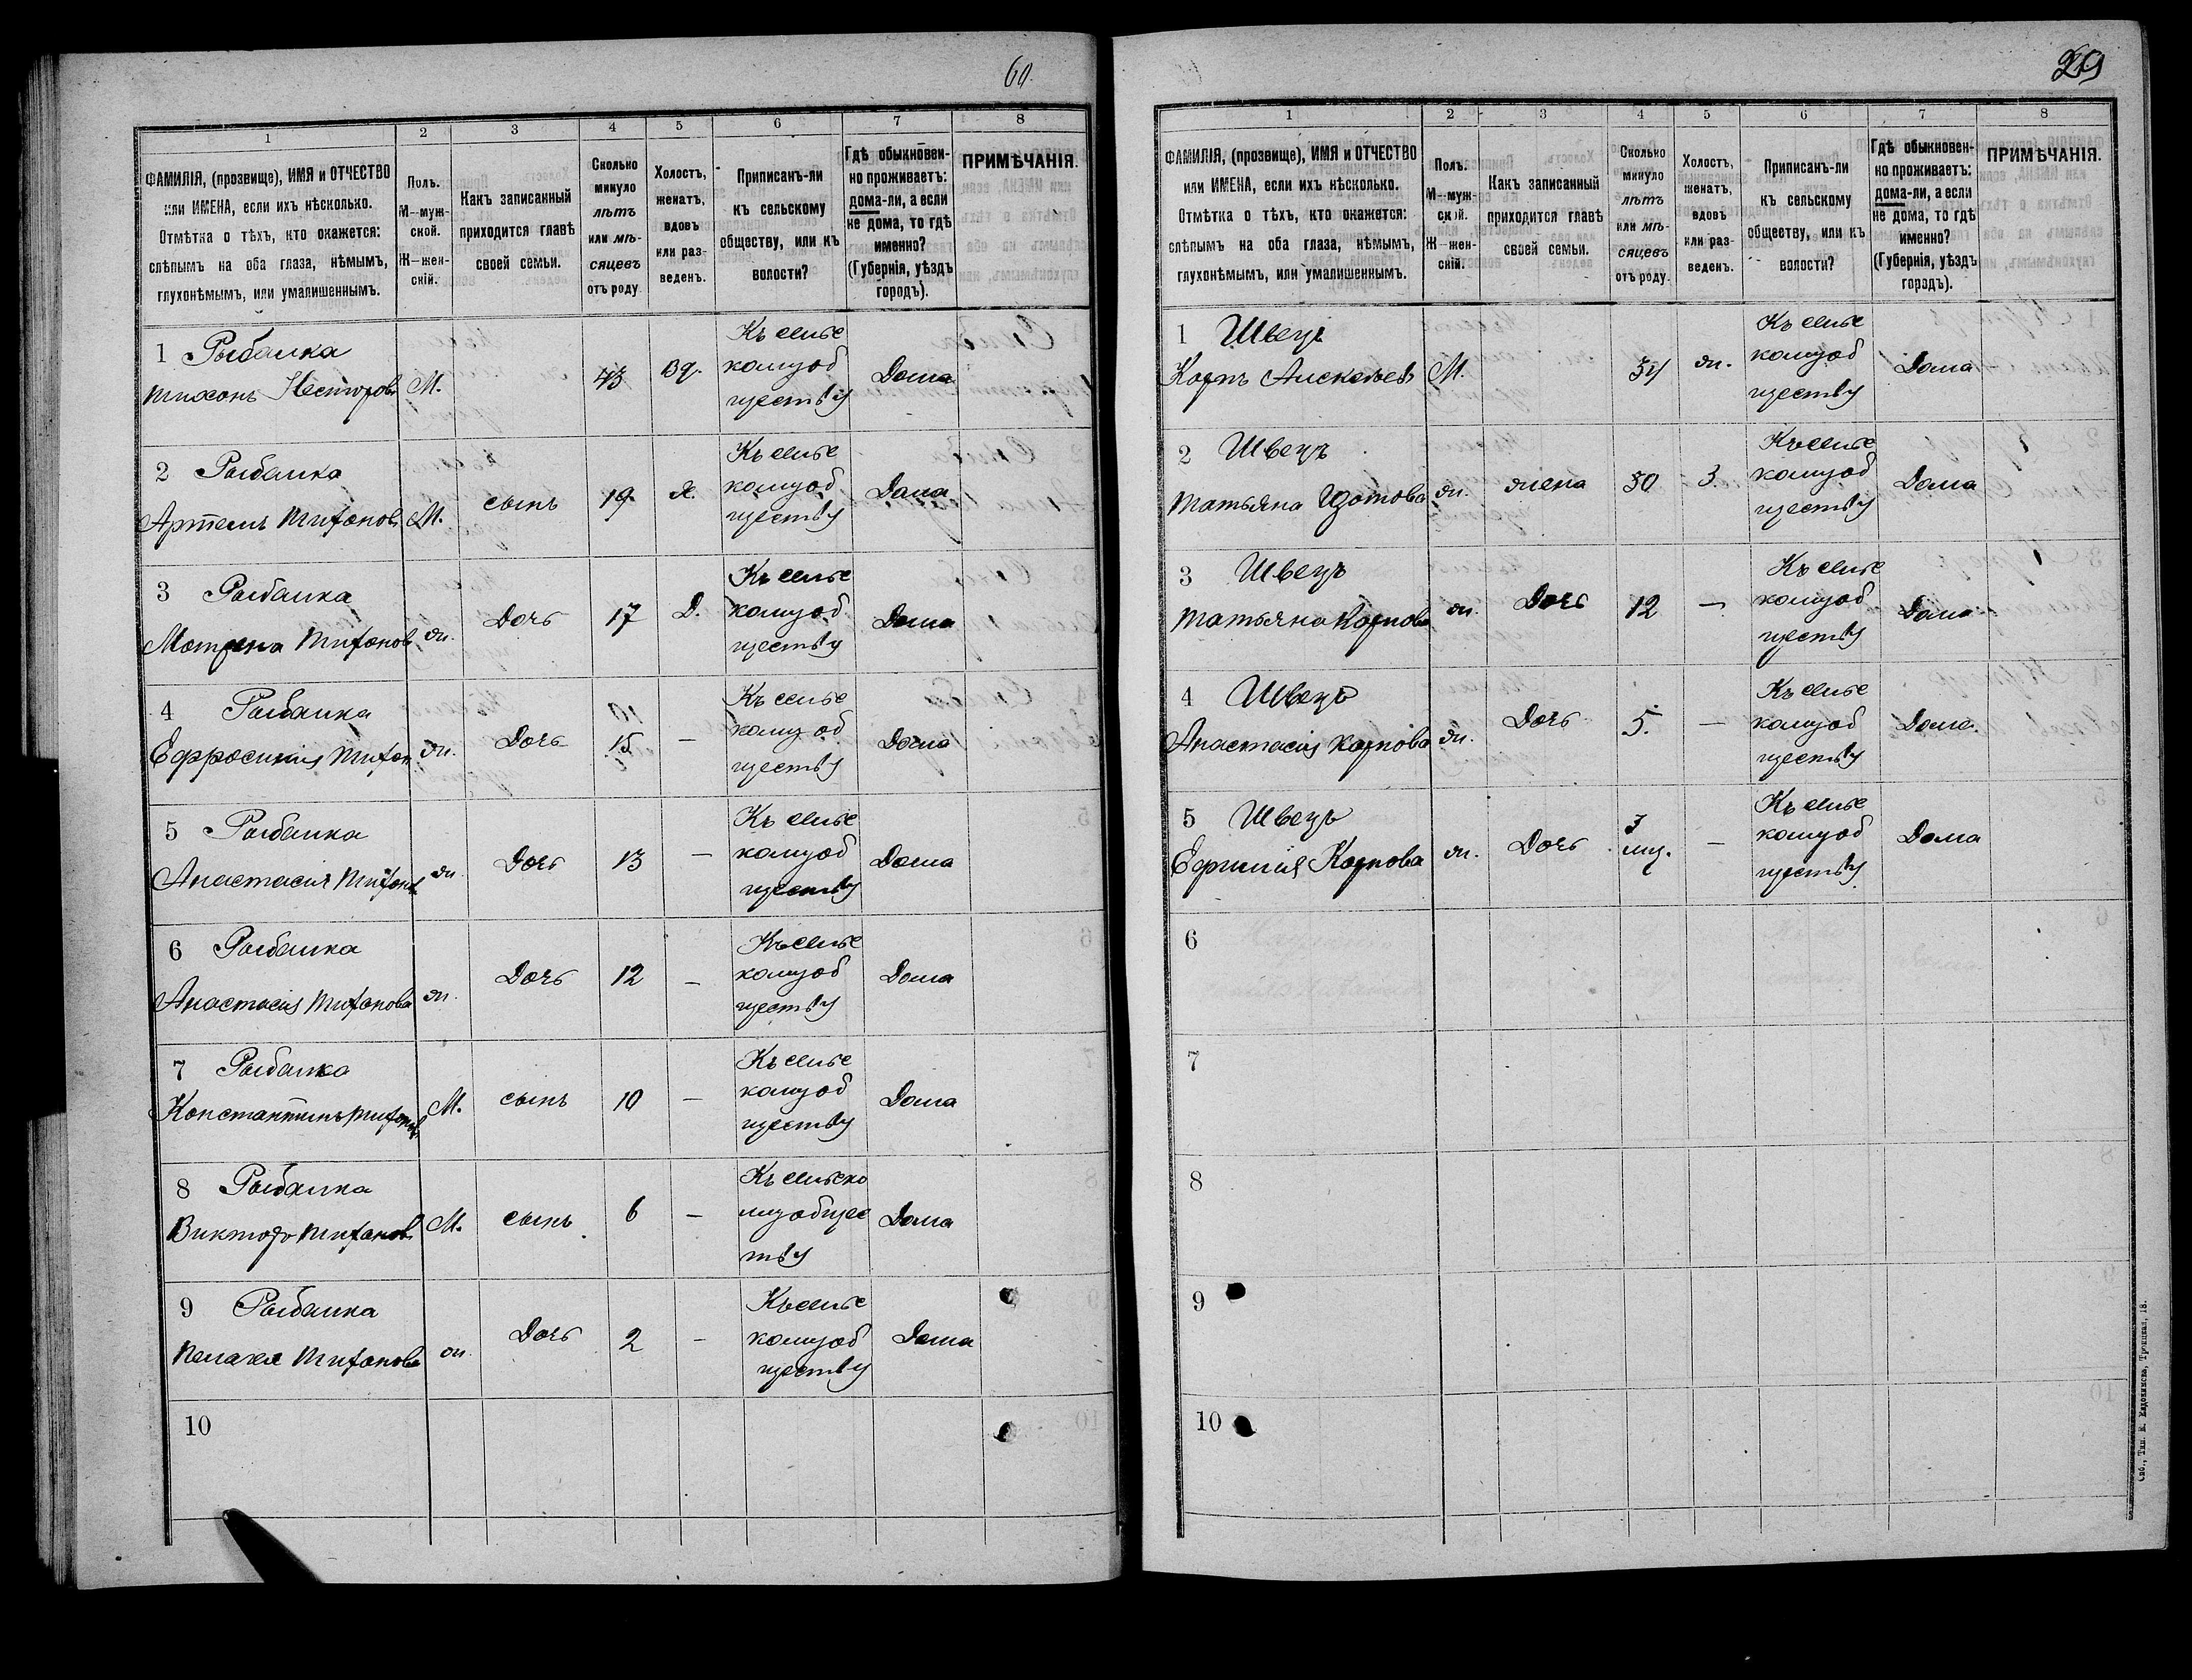 60
1 2 3 4 5 6 7 8
ФАМИЛІЯ, (прозвище), ИМЯ и ОТЧЕСТВО
или ИМЕНА, если ихъ нѣсколько.
Отмѣтка о тѣхъ, кто окажется:
слѣпымъ на оба глаза, нѣмымъ,
глухонѣмымъ, или умалишеннымъ.
Полъ.
М—муж-
ской.
Ж—жен-
скій.
Какъ записанный
приходится главѣ
своей семьи.
Сколько
минуло
лѣтъ
или мѣ-
сяцевъ
отъ роду.
Холостъ,
женатъ,
вдовъ
или раз-
веденъ.
Приписанъ-ли
къ сельскому
обществу, или къ
волости?
Гдѣ обыкновен-
но проживаетъ:
дома-ли, а если
не дома, то гдѣ
именно?
(Губернія, уѣздъ
городъ).
ПРИМѢЧАНІЯ.
1 Рыбалка
Тихонъ Несторовъ М. 43 Вд. Къ сельс
комуоб
ществу Дома
2 Рыбалка
Артемъ Тихоновъ М. сынъ 19 Х. Къ сельс
комуоб
ществу Дома
3 Рыбалка
Матрена Тихонов ж. Дочь 17 Д. Къ сельс
комуоб
ществу Дома
4 Рыбалка
Ефросинія Тихон ж. Дочь 15 — Къ сельс
комуоб
ществу Дома
5 Рыбалка
Анастасія Тихонов ж. Дочь 13 — Къ сельс
комуоб
ществу Дома
6 Рыбалка
Анастасія Тихонова ж. Дочь 12 — Къ сельс
комуоб
ществу Дома
7 Рыбалка
Константинъ Тихоновъ М. сынъ 10 — Къ сельс
комуоб
ществу Дома
8 Рыбалка
Викторъ Тихоновъ М. сынъ 6 — Къ сельско
муобщес
тву Дома
9 Рыбалка
Пелагея Тихонова ж. Дочь 2 — Къ сельс
комуоб
ществу Дома
10
1 2 3 4 5 6 7 8
ФАМИЛІЯ, (прозвище), ИМЯ и ОТЧЕСТВО
или ИМЕНА, если ихъ нѣсколько.
Отмѣтка о тѣхъ, кто окажется:
слѣпымъ на оба глаза, нѣмымъ,
глухонѣмымъ, или умалишеннымъ.
Полъ.
М—муж-
ской.
Ж—жен-
скій.
Какъ записанный
приходится главѣ
своей семьи.
Сколько
минуло
лѣтъ
или мѣ-
сяцевъ
отъ роду.
Холостъ,
женатъ,
вдовъ
или раз-
веденъ.
Приписанъ-ли
къ сельскому
обществу, или къ
волости?
Гдѣ обыкновен-
но проживаетъ:
дома-ли, а если
не дома, то гдѣ
именно?
(Губернія, уѣздъ
городъ).
ПРИМѢЧАНІЯ.
1 Швецъ
Карпъ Алексѣевъ М. ж. Къ сельс
комуоб
ществу Дома
2 Швецъ
Татьяна ж. жена 30 З. Къ сельс
комуоб
ществу Дома
3 Швецъ
Татьяна Карпова ж. Дочь 12 — Къ сельс
комуоб
ществу Дома
4 Швецъ
Анастасія Карпова ж. Дочь 5. — Къ сельс
комуоб
ществу Дома
5 Швецъ
Ефимія Карпова ж. Дочь 3 — Къ сельс
комуоб
ществу Дома
6
7
8
9
10